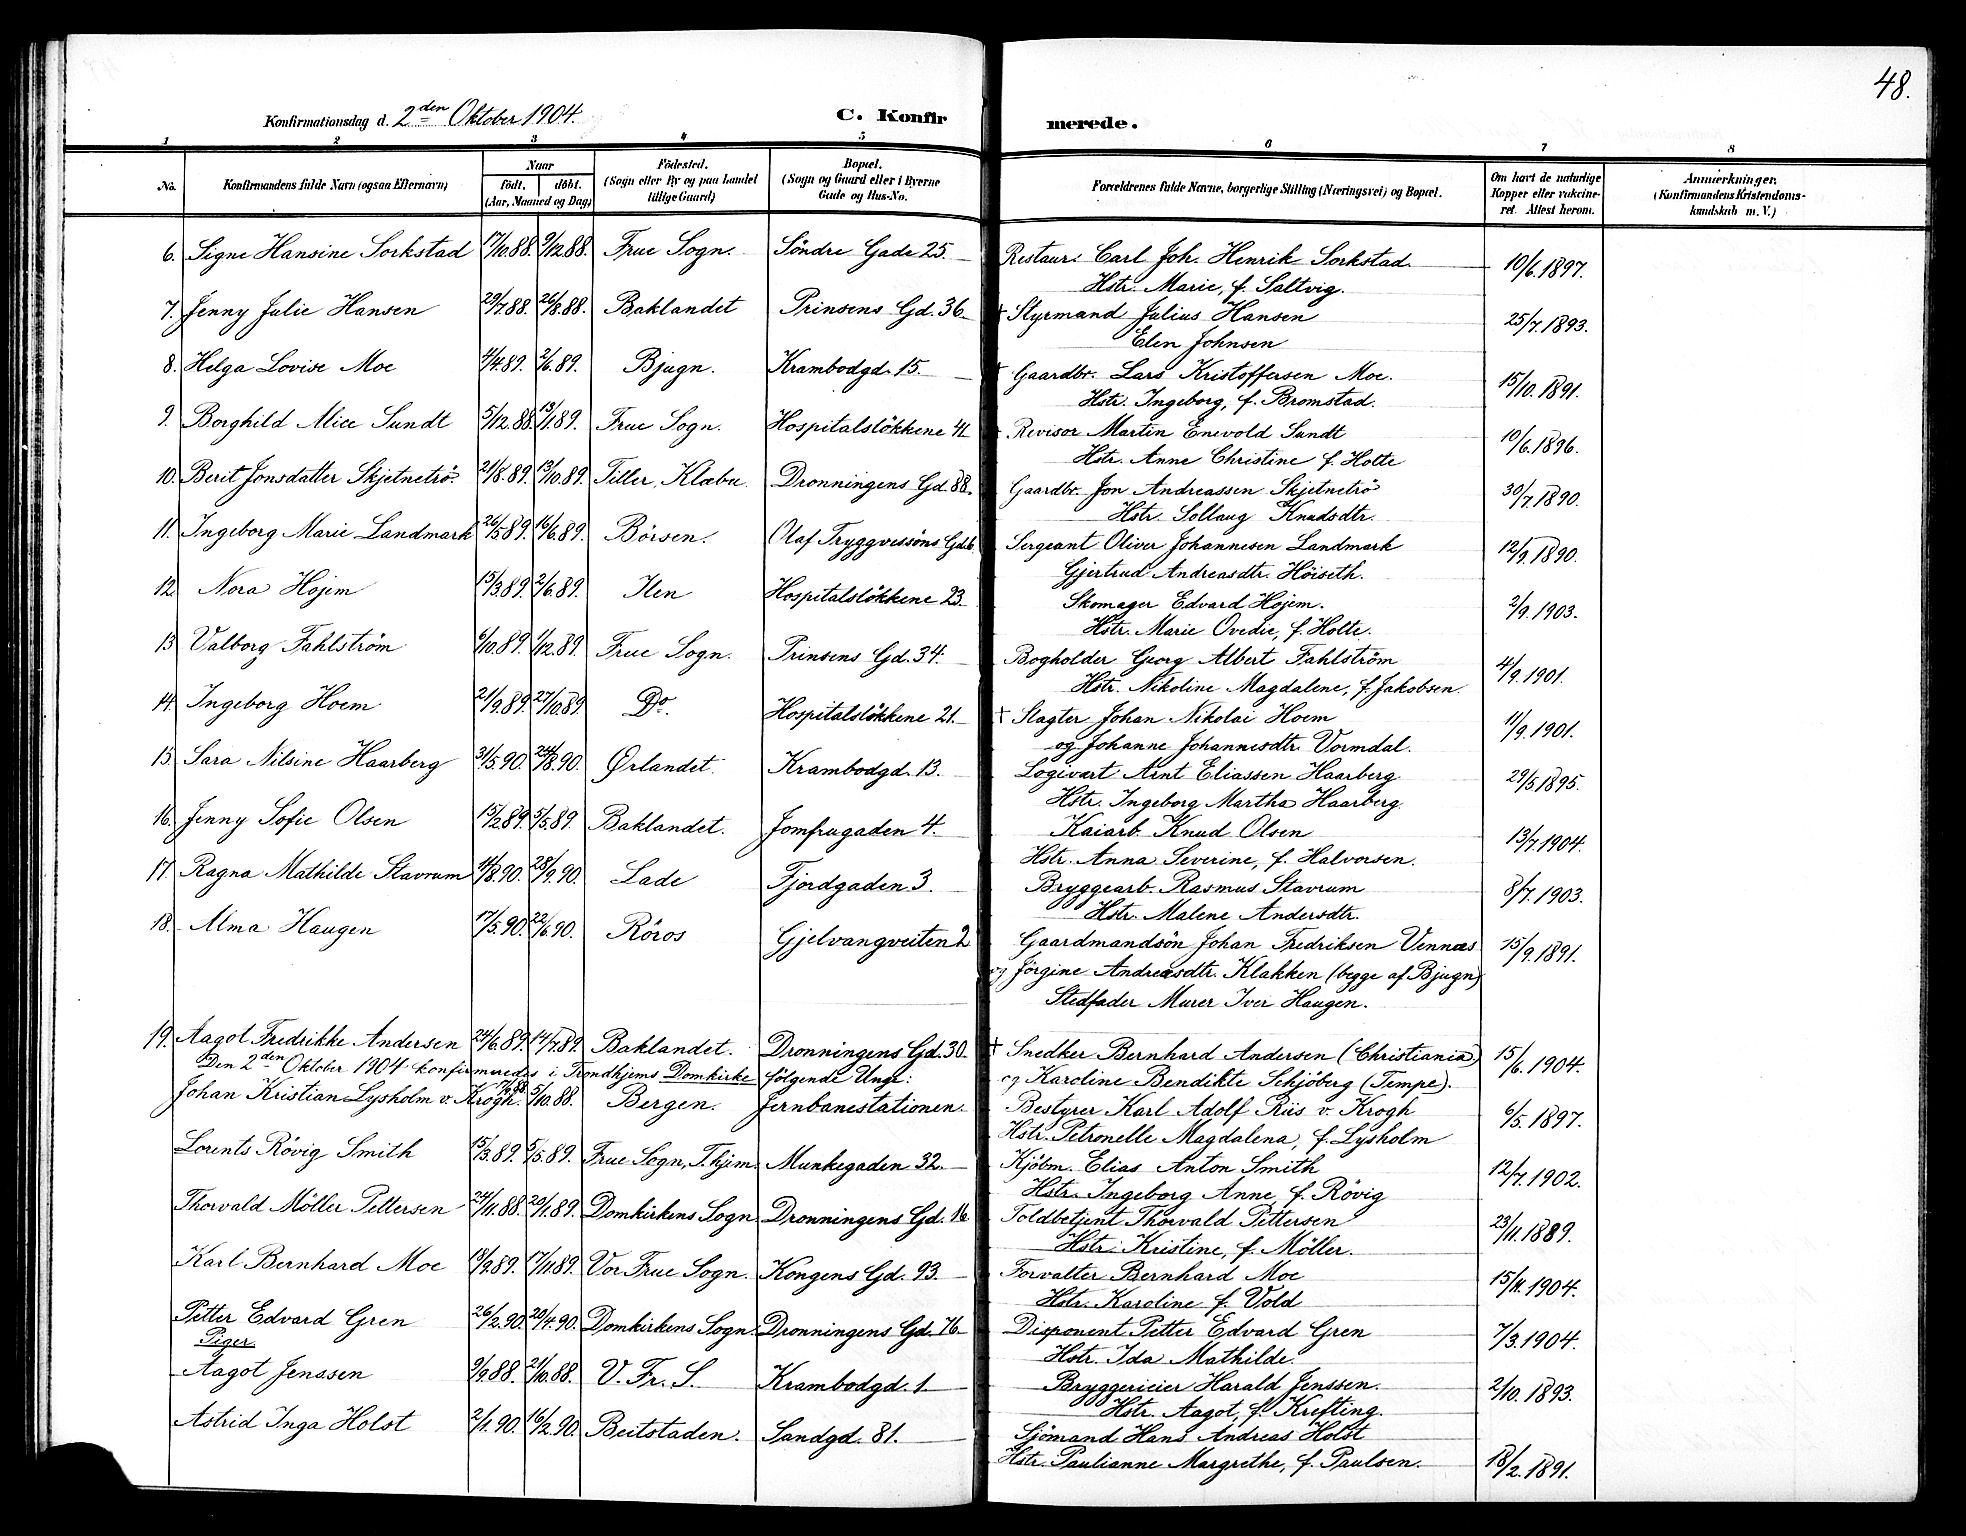 48.
Konfirmationsdag d. 2den Oktober 1904.
C. Konfirmerede.
1 2 3 4 5 6 7 8
No.
Konfirmandens fulde Navn (ogsaa Efternavn)
Naar
födt. döbt.
(Aar, Maaned og Dag)
Födested.
(Sogn eller By og paa Landet
tillige Gaard)
Bopæl.
(Sogn og Gaard eller i Byerne
Gade og Hus-No.
Forældrenes fulde Navne, borgerlige Stilling (Næringsvei) og Bopæl.
Om havt de naturlige
Kopper eller vakcine-
ret. Attest herom.
Anmerkninger.
(Konfirmandens Kristendoms-
kundskab m. V.)
6. Signe Hansine Sorkstad 17/10.88. 9/12.88. Frue Sogn. Söndre Gade 25. Restaur. Carl Joh. Henrik Sorkstad 10/6.1897.
Hstr. Marie, f. Saltvig.
7. Jenny Julie Hansen 29/7.88. 26/8.88. Baklandet Prinsens Gd. 36. † Styrmand Julius Hansen 25/7.1893.
Elen Johnsen
8. Helga Lovise Moe 4/4.89. 2/6.89. Bjugn. Krambodgd. 15. † Gaardbr. Lars Kristoffersen Moe. 15/10.1891.
Hstr. Ingeborg, f. Bromstad.
9. Borghild Alice Sundt 5/12.88. 13/1.89. Frue Sogn. Hospitalslökkene 41 † Revisor Martin Enevold Sundt 10/6.1896.
Hstr. Anne Christine f. Holte
10. Berit Jonsdatter Skjetnetrö. 21/8.89. 13/10.89. Tiller, Klæbu. Dronningens Gd. 88. Gaardbr. Jon Andreassen Skjetnetrö 30/7.1890.
Hstr. Sollaug Knudsdtr.
11. Ingeborg Marie Landmark 26/5.89. 16/6.89. Börsen. Olaf Tryggvessöns Gd. 6. Sergeant Oliver Johannesen Landmark 12/9.1890.
Gjertrud Andreasdtr. Höiseth.
12 Nora Hojem 15/3.89. 2/6.89. Ilen Hospitalslökkene 23. Skomager Edvard Hojem. 2/9.1903.
Hstr. Marie Ovedie, f. Holte.
13 Valborg Fahlström 6/10.89. 1/12.89. Frue Sogn. Prinsens Gd. 34. Bogholder Georg Albert Fahlström 4/9.1901.
Hstr. Nikoline Magdalene, f. Jakobsen.
14. Ingeborg Hoem 21/9.89. 27/10.89 Do. Hospitalslökkene 21. † Slagter Johan Nikolai Hoem 11/9.1901.
og Johanne Johannesdtr. Vormdal.
15. Sara Nilsine Haarberg 31/5.90. 24/8.90. Ørlandet. Krambodgd. 13. Logivært Arnt Eliassen Haarberg 29/5.1895.
Hstr. Ingeborg Martha Haarberg
16. Jenny Sofie Olsen 15/2.89. 5/5.89. Baklandet. Jomfrugaden 4. Kaiarb. Knud Olsen 13/7.1904.
Hstr. Anna Severine, f. Halvorsen.
17. Ragna Mathilde Stavrum 14/8.90. 28/9.90. Lade Fjordgaden 3. Bryggearb. Rasmus Stavrum 8/7.1903.
Hstr. Malene Andersdtr.
18. Alma Haugen 17/5.90. 22/6.90. Röros Gjelvangveiten 2 Gaardmandsön Johan Fredriksen Vennæs 15/9.1891.
og Jörgine Andreasdtr. Klakken (begge af Bjugn)
Stedfader Murer Iver Haugen.
19. Aagot Fredrikke Andersen 24/6.89. 14/7.89. Baklandet. Dronningens Gd. 30. † Snedker Bernhard Andersen (Christiania) 15/6.1904.
og Karoline Bendikte Schjöberg (Tempe).
Den 2den Oktober 1904 konfirmeredes i Trondhjems Domkirke følgende Unge:
Johan Kristian Lysholm v. Krogh. 17/9.88. 5/10.88. Bergen. Jernbanestationen. Bestyrer Karl Adolf Riis v. Krogh 6/5.1897.
Hstr. Petronelle Magdalena, f. Lysholm
Lorents Rövig Smith 15/3.89. 5/5.89. Frue Sogn, T.hjem. Munkegaden 32. Kjöbm. Elias Anton Smith 12/7.1902.
Hstr. Ingeborg Anne, f. Rövig
Thorvald Möller Pettersen 24/11.88. 20/1.89. Domkirkens Sogn Dronningens Gd. 16 Toldbetjent Thorvald Pettersen 23/11.1889.
Hstr. Kristine, f. Möller.
Karl Bernhard Moe 18/9.89. 17/11.89. Vor Frue Sogn. Kongens Gd. 93. Forvalter Bernhard Moe 15/4.1904.
Hstr. Karoline f. Vold
Petter Edvard Gren 26/2.90. 20/4.90. Domkirkens Sogn. Dronningens Gd. 76 Disponent Petter Edvard Gren 7/3.1904.
Hstr. Ida Mathilde.
Piger.
Aagot Jenssen 9/9.88. 21/10.88. V. Fr. S. Krambodgd. 1. Bryggerieier Harald Jenssen. 2/10.1893.
Hstr. Aagot, f. Krefting.
Astrid Inga Holst 2/1.90. 16/2.90. Beitstaden. Sandgd. 81. Sjömand Hans Andreas Holst 18/2.1891.
Hstr. Paulianne Margrethe, f. Paulsen.